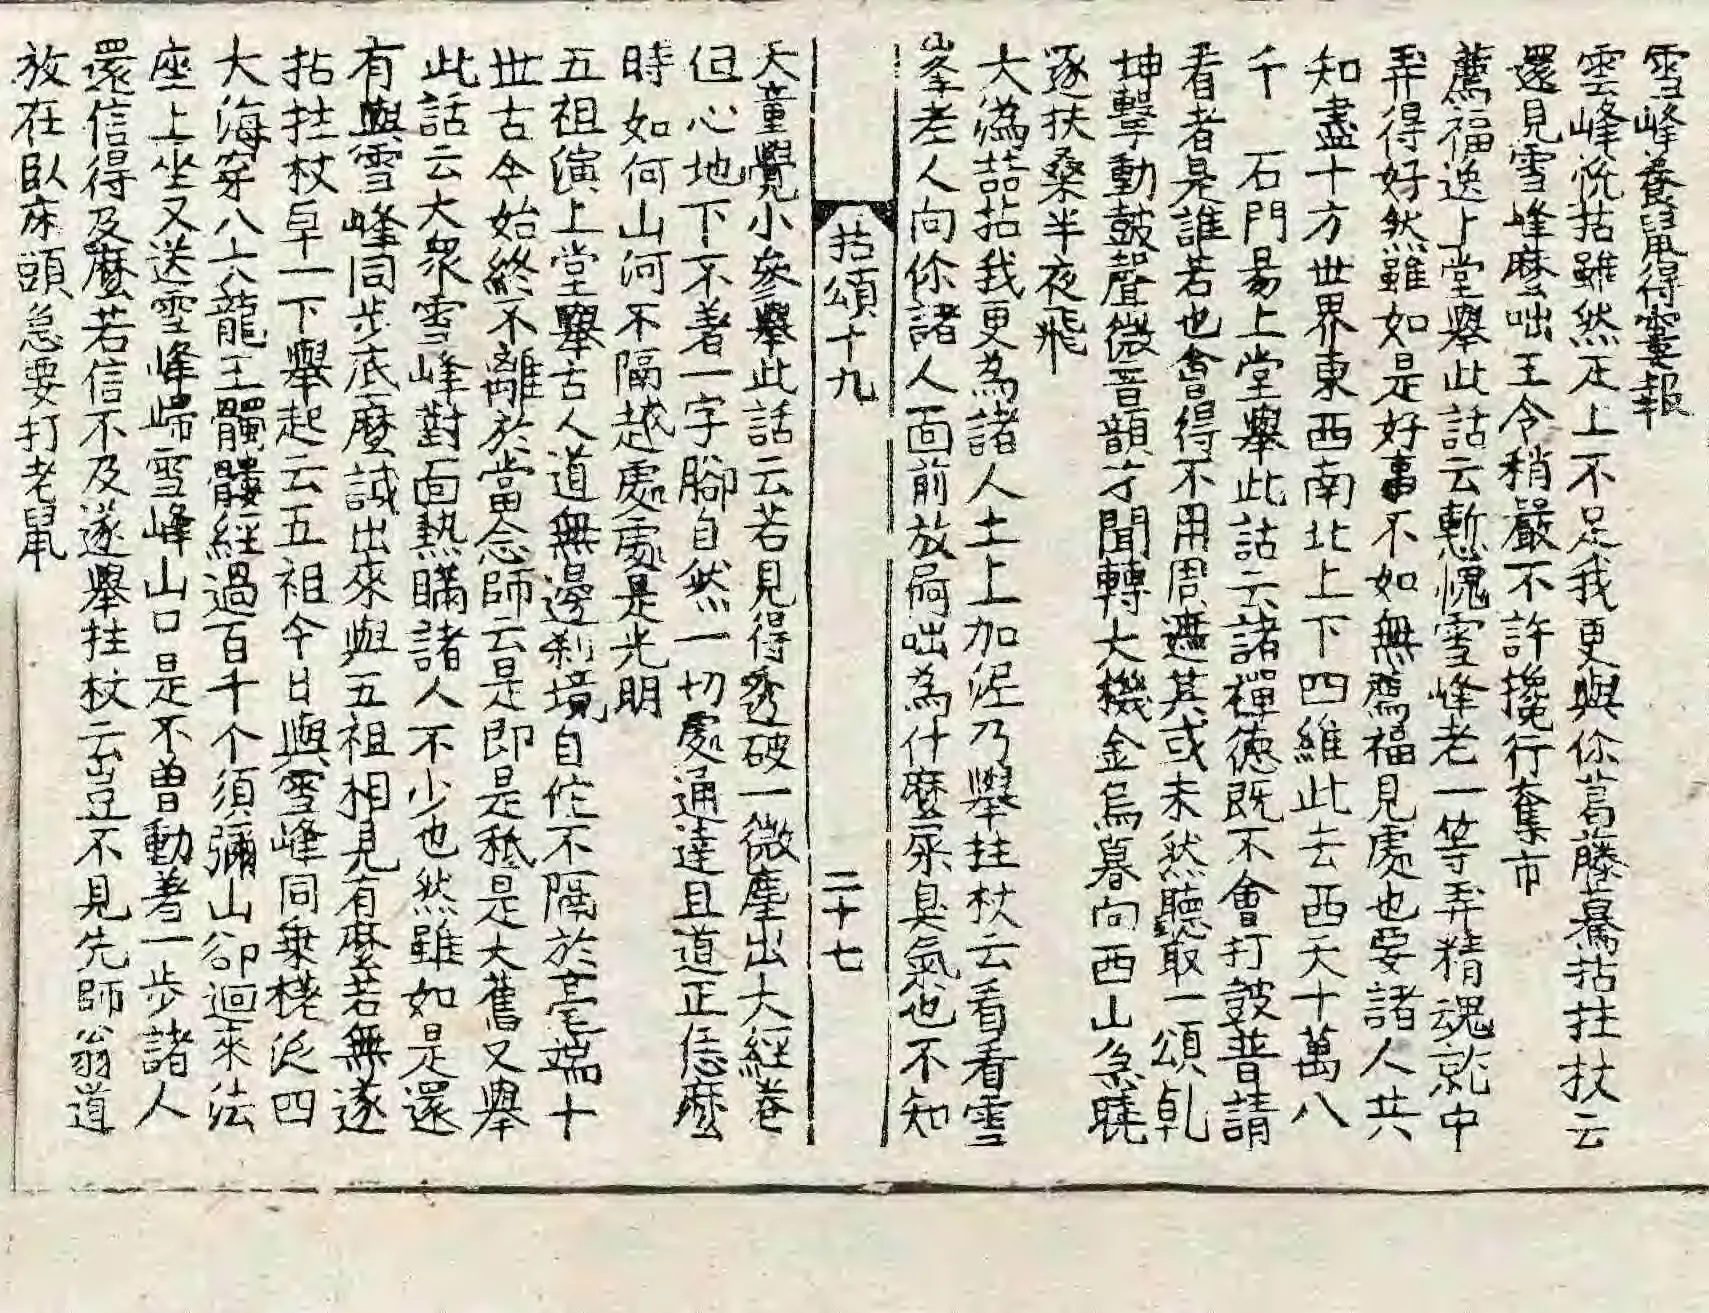 雪峰養鼠得靈報
雲峰悅拈雖然疋上不足我更與你葛藤驀拈拄杖云
還見雪峰麽咄王令稍嚴不許攙行奪市
薦福逸上堂舉此話云慙愧雪峰老一等弄精魂就中
弄得好然雖如是好事不如無薦福見處也要諸人共
知盡十方世界東西南北上下四維此去西天十萬八
千　石門易上堂舉此話云諸禪德旣不會打皷普請
看看者是誰若也會得不用周遮其或未然聽取一頌乹
坤擊動皷聲微音韻才聞轉大機金烏暮向西山急曉
逐扶桑半夜飛
大潙喆拈我更為諸人土上加泥乃舉拄杖云看看雪
峯老人向你諸人面前放屙咄為什麽屎臭氣也不知
拈頌十九　二十七
天童覺小參舉此話云若見得透破一微塵出大經卷
但心地下不著一字脚自然一切處通達且道正恁麽
時如何山河不隔越處處是光明
五祖演上堂舉古人道無邊刹境自佗不隔於毫端十
世古今始終不離於當念師云是即是秪是大舊又舉
此話云大衆雪峰對面熱瞞諸人不少也然雖如是還
有與雪峰同步底麽試出來與五祖相見有麽若無遂
拈拄杖卓一下舉起云五祖今日與雪峰同乗槎泛四
大海穿八大龍王髑髏經過百千个須彌山卻迴來法
座上坐又送雪峰歸雪峰山口是不曽動著一步諸人
還信得及麽若信不及遂舉拄杖云豈不見先師翁道
放在臥床頭急要打老鼠